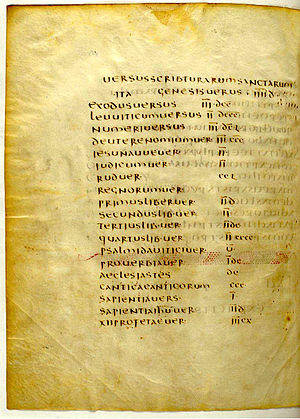 UERSUS SCRIPTURARUM SANCTARUM
ITA GENESIS UERSUS IIIID
EXODUS UERSUS III DCC
LEUITICUM UERSUS II DCCC
NUMERI UERSUS III DCL
DEUTERENOMIUM UER III CCC
IESU NAUUE UER II
IUDICUM UER II
RUD UER CCL
REGNORUM UER
PRIMUS LIBER UER IID
SECUNDUS LIB UER II
TERTIUS LIB UER IIDC
QUARTUS LIB UER II CCCC
PSALMI DAUITICI UER U
PROUERBIA UER IDC
AECLESIASTES DC
CANTICA CANTICORUM CCC
SAPIENTIA UERS I
SAPIENTIA IHU UER IID
XII PROFETAE UER III CX